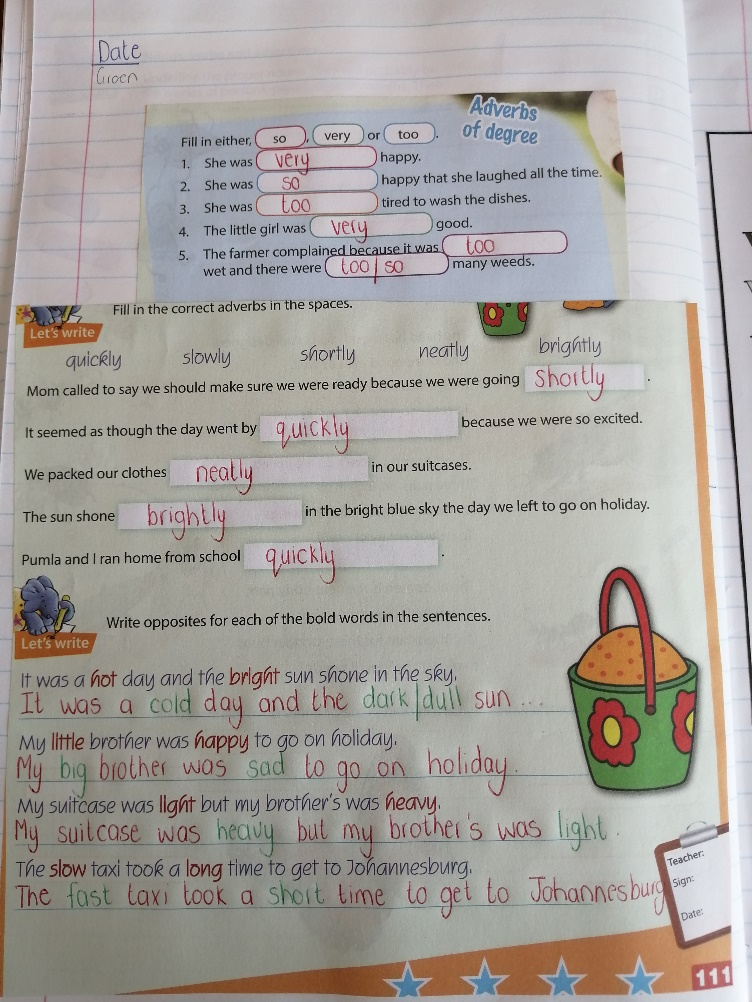 Date
Groen
Adverbs
of degree
Fill in either, so, very or too.
1. She was very happy.
2. She was so happy that she laughed all the time.
3. She was too tired to wash the dishes.
4. The little girl was very good.
5. The farmer complained because it was too
wet and there were too|so many weeds.
Fill in the correct adverbs in the spaces.
Let's write
quickly slowly shortly neatly brightly
Mom called to say we should make sure we were ready because we were going shortly.
It seemed as though the day went by quickly because we were so excited.
We packed our clothes neatly in our suitcases.
The sun shone brightly in the bright blue sky the day we left to go on holiday.
Pumla and I ran home from school quickly.
Write opposites for each of the bold words in the sentences.
Let's write
It was a hot day and the bright sun shone in the sky.
It was a cold day and the dark|dull sun ...
My little brother was happy to go on holiday.
My big brother was sad to go on holiday.
My suitcase was light but my brother's was heavy.
My suitcase was heavy but my brother's was light.
The slow taxi took a long time to get to Johannesburg.
The fast taxi took a short time to get to Johannesburg
Teacher:
Sign:
Date:
111